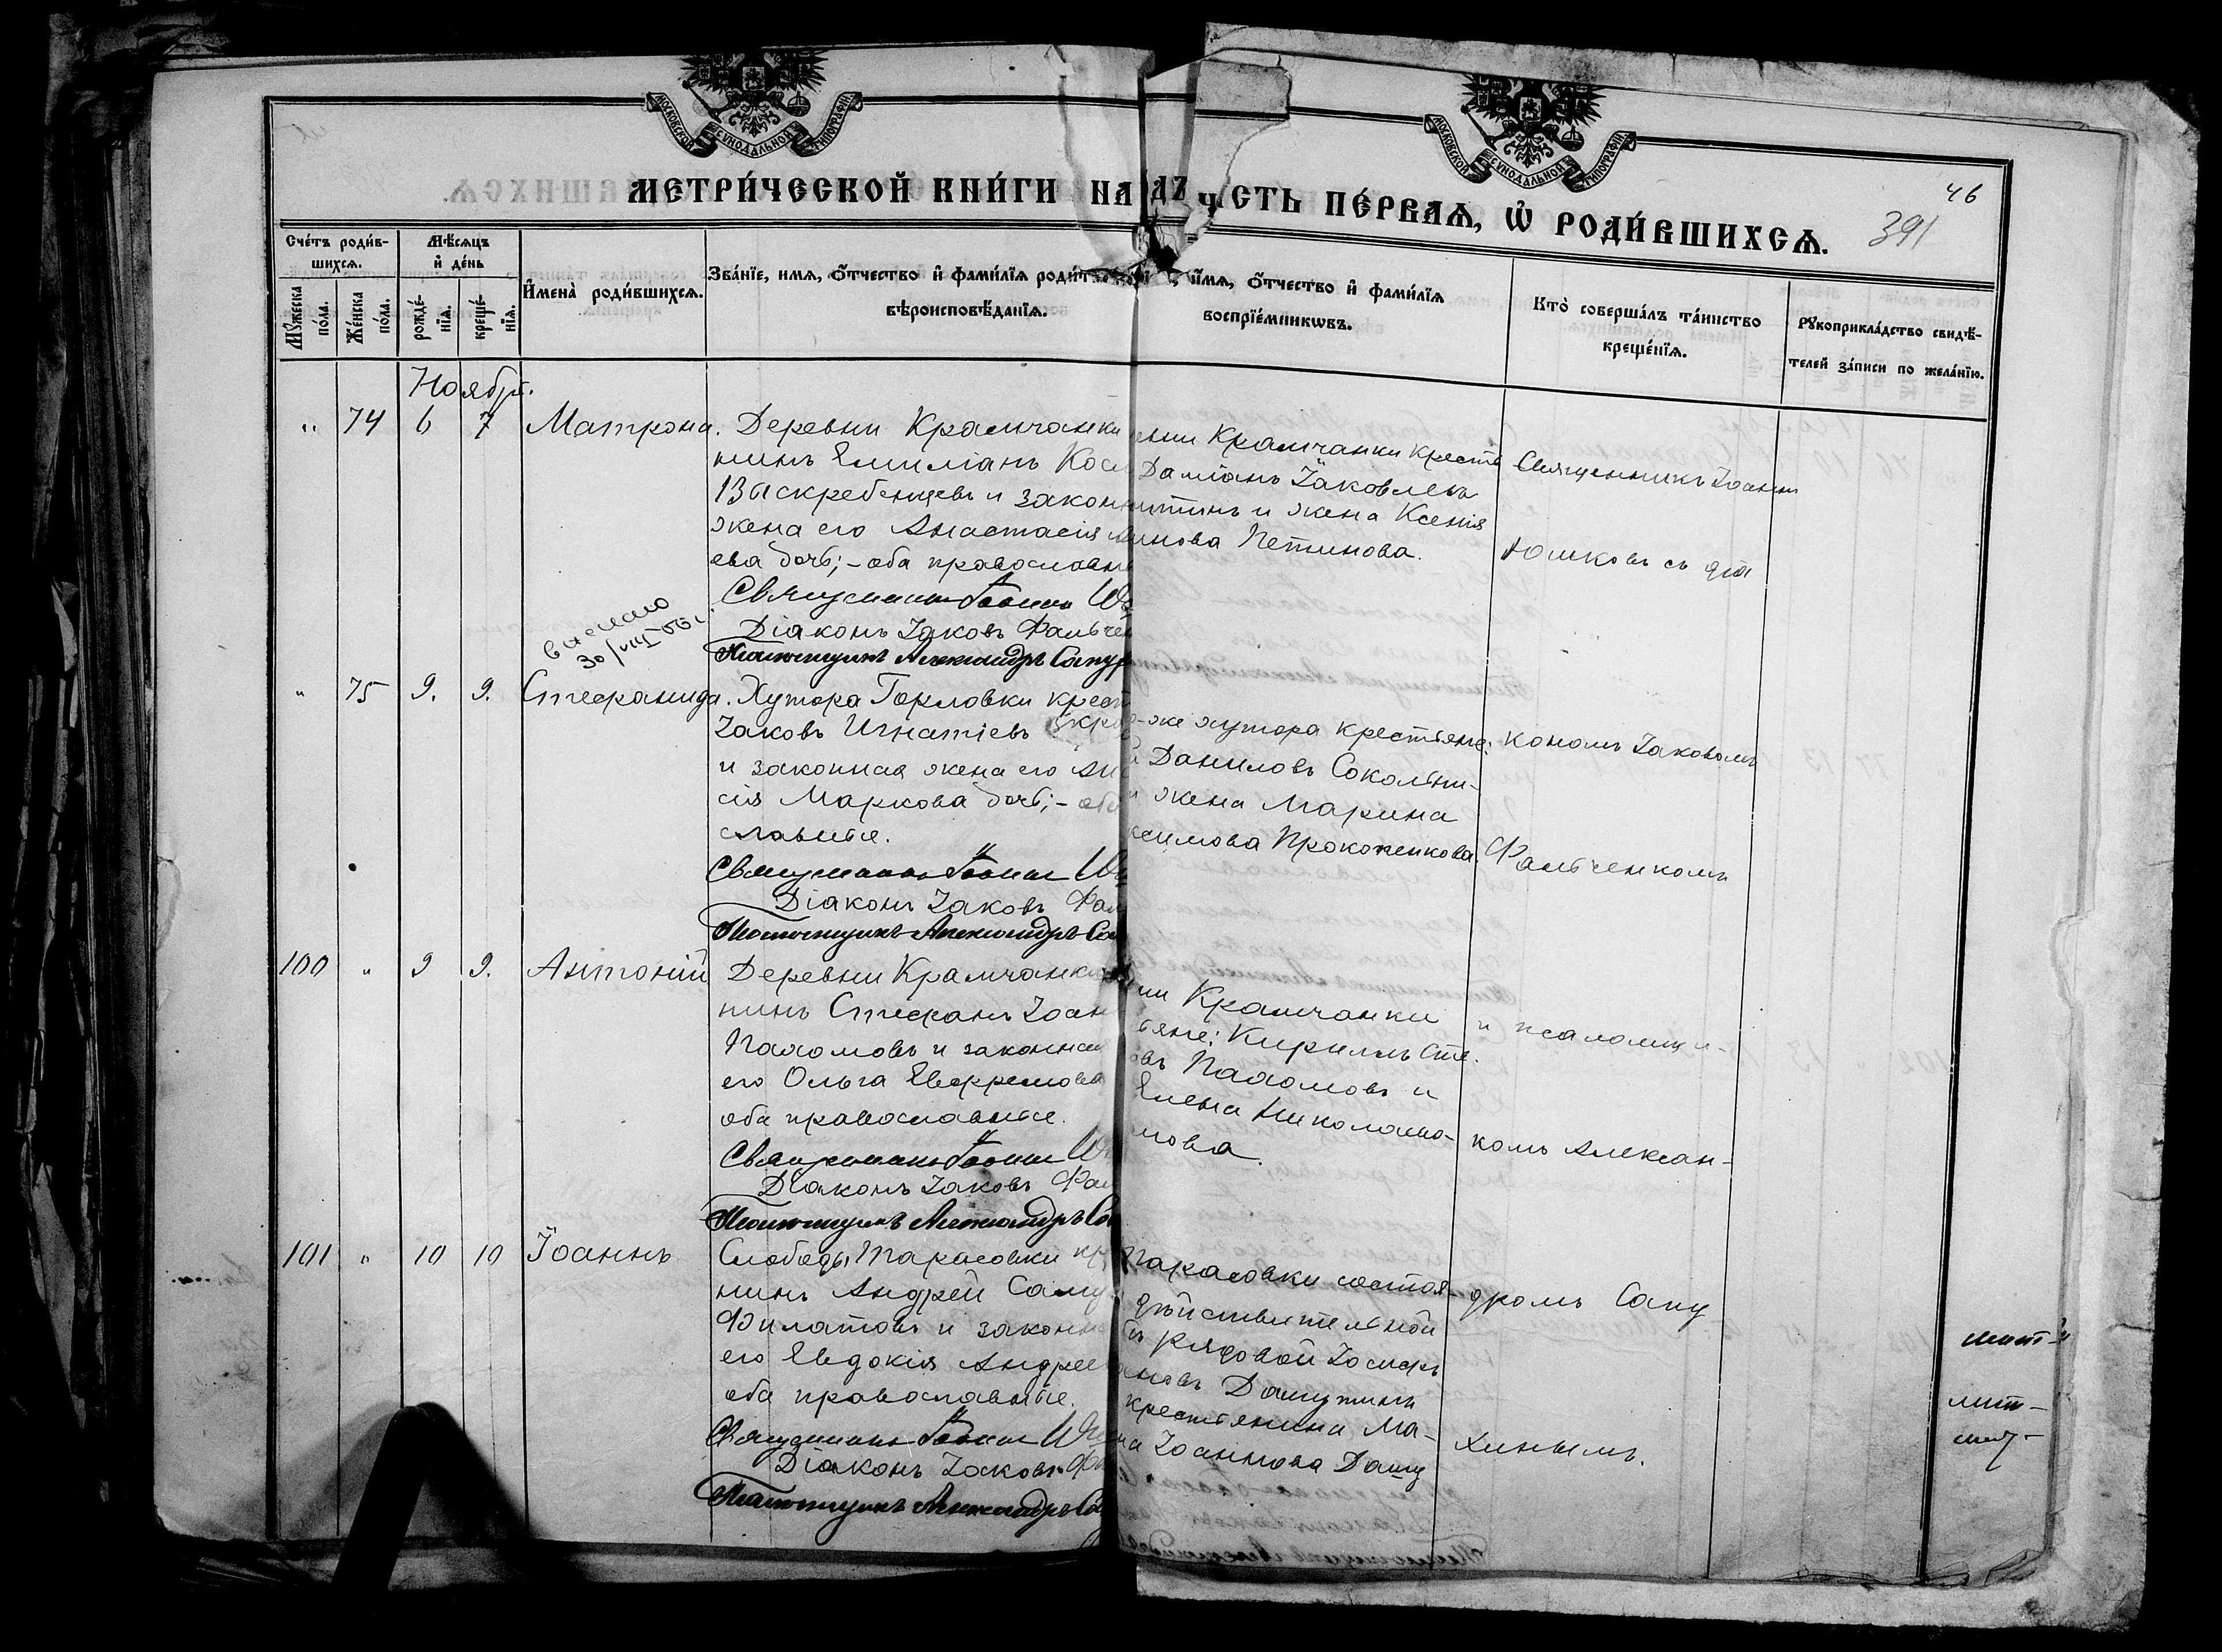 МОСКОВСКОЙ СУНОДАЛЬНОЙ ТИПОГРАФІИ
МОСКОВСКОЙ СУНОДАЛЬНОЙ ТИПОГРАФІИ
МЕТРИ́ЧЕСКОЙ КНИ́ГИ НА
ЧА́СТЬ ПЕ́РВАѦ, Ѿ РОДИ́ВШИХСѦ.
46
391
Сче́тъ роди́в-
шихсѧ.
Мѣ́сѧцъ
и҆ де́нь
Мꙋ́жеска по́ла.
Же́нска по́ла.
рожде́-
нїѧ.
креще́-
нїѧ.
И҆мена̀ роди́вшихсѧ.
Зва́нїе, имѧ, ѻ҆́тчество и҆ фами́лїѧ роди́т
вѣроисповѣ́данїѧ.
и҆́мѧ, ѻ҆́тчество и҆ фами́лїѧ
воспрїе́мникѡвъ.
Кто̀ соверша́лъ та́инство
креще́нїѧ.
Рꙋкоприкла́дство свидѣ́-
телей за́писи по жела́нїю.
Ноябрь.
" 74 6 7 Матрона. Деревни Крамчанки
нинъ Емиліанъ Кос
Выскребенцевъ и закон
жена его Анастасія
ева дочь; - оба православн
Священникъ Іоаннъ
Діаконъ Іаковъ Фальчен
Псаломщикъ Александръ Сапу
Крамчанки кресть
Даміанъ Іаковлевъ
и жена Ксенія
Петинова.
Священникъ Іоаннъ
Юшковъ съ діа
30/VIII 66 г.
" 75 9. 9. Стефанида. Хутора Горловки крест
Іаковъ Игнатіевъ
и законная жена его
сія Маркова дочь; - оба
славные.
Священникъ Іоаннъ
Діаконъ Іаковъ Фал
Псаломщикъ Александръ Са
же хутора крестьяне:
Даниловъ Сокольни-
жена Марина
Прокопенкова.
кономъ Іаковомъ
Фальченкомъ
100 " 9 9. Антоній Деревни Крамчанки
нинъ Стефанъ Іоан
Пахомовъ и законная
его Ольга Евфремова
оба православные.
Священникъ Іоаннъ
Діаконъ Іаковъ Фал
Псаломщикъ Александръ Са
Крамчанки
Кириллъ Сте-
Пахомовъ и
Елена Николаева
мова.
и псаломщи-
комъ Алексан-
101 " 10 10 Іоаннъ Слободы Тарасовки кр
нинъ Андрей Саму
Филатовъ и законна
его Евдокія Андрее
оба православные.
Священникъ Іоаннъ
Діаконъ Іаковъ Фа
Псаломщикъ Александръ Са
Тарасовки состоя-
дѣйствительной
рядовой Іосифъ
Дашутинъ
крестьянина Ма-
Іоаннова Дашу
дромъ Сапу
хинымъ.